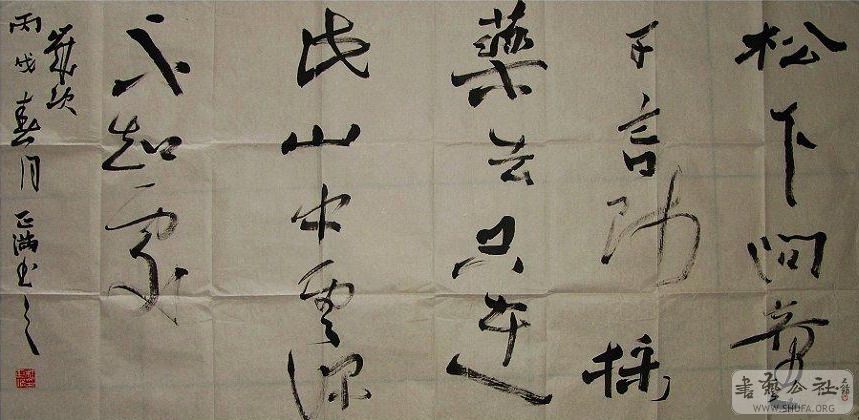 松下问童
子言师採
藥去只在
此山中雲深
不知處
歲次
丙戌春月正满书之
書藝公社
WWW.SHUFA.ORG